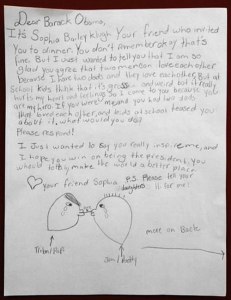 Dear Barack Obama,
It's Sophia Bailey klugh. Your friend who invited
you to dinner. You don't remember okay that's
fine. But I just wanted to tell you that I am so
glad you agree that two men can love each other
because I have two dads and they love each other. But at
school kids think that it's gross and weird but it really
hurts my heart and feelings. So I come to you because you
are my hero. If you were me and you had two dads
that loved each other, and kids at school teased you
about it, what would you do?
Please respond!
I Just wanted to say you really inspire me, and
I hope you win on being the president. You
would totally make the world a better place.
your friend Sophia
P.S. Please tell your
daughters Hi for me!
more on Back